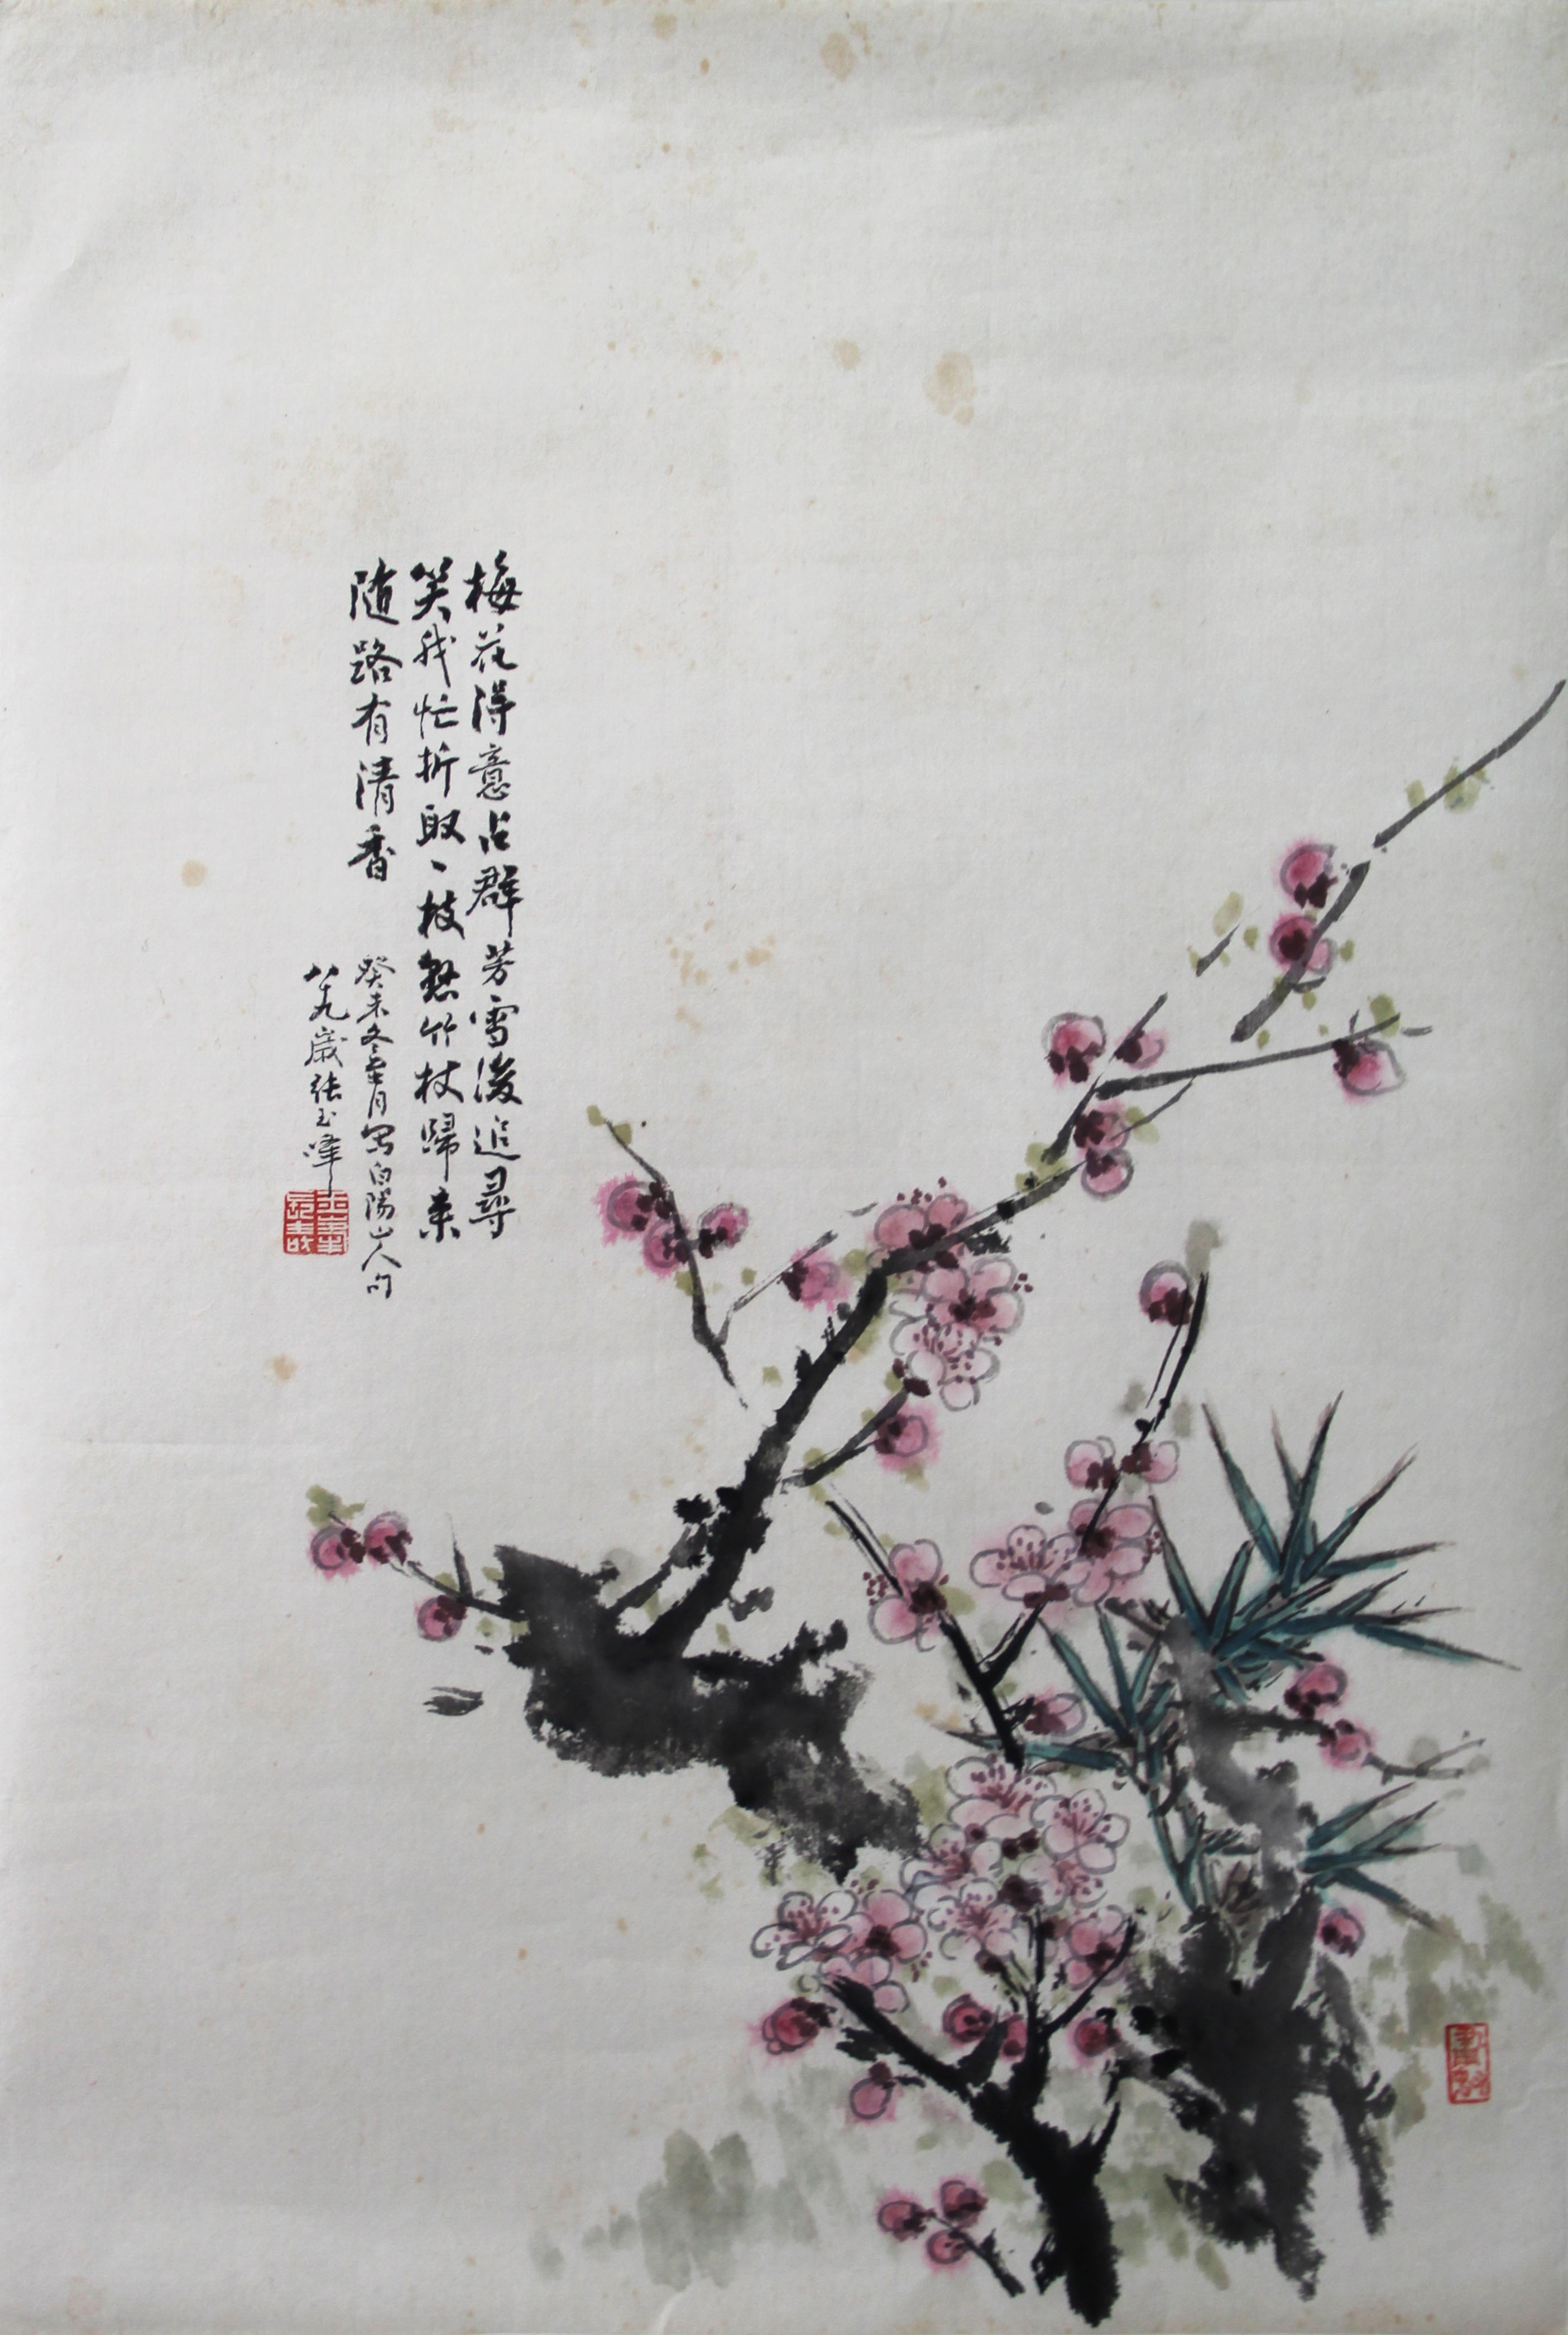 梅花得意占群芳雪後追尋
笑我忙折取一枝懸竹杖歸来
随路有清香
癸未冬月写白陽山人句
八十九歲張玉峰